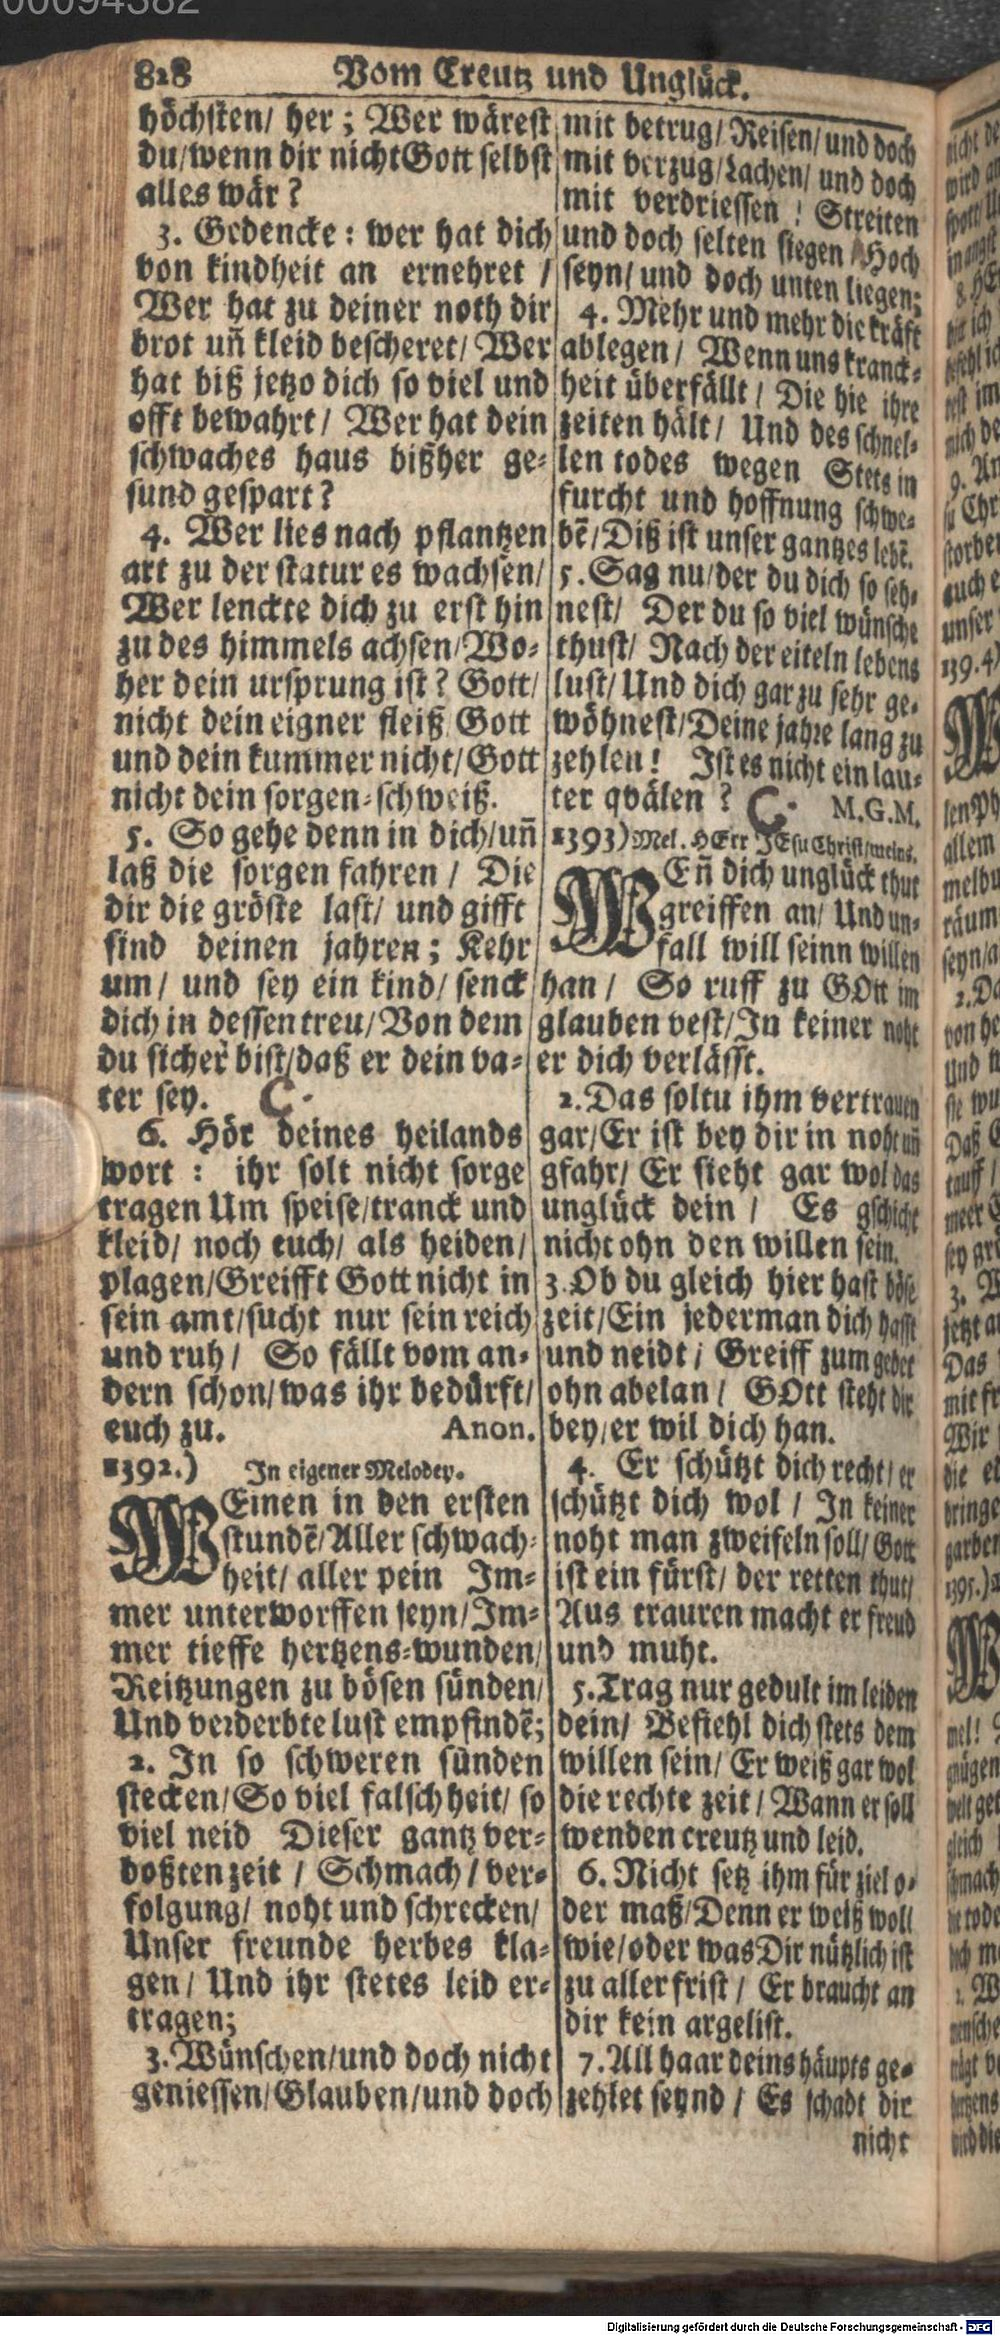 00094382
828 Vom Creutz und Unglück.
höchsten/ her; Wer wärest
du/wenn dir nicht Gott selbst
alles wär?
3. Gedencke: wer hat dich
von kindheit an ernehret /
Wer hat zu deiner noth dir
brot uñ kleid bescheret/ Wer
hat biß jetzo dich so viel und
offt bewahrt/ Wer hat dein
schwaches haus bißher ge-
sund gespart?
4. Wer lies nach pflantzen
art zu der statur es wachsen/
Wer lenckte dich zu erst hin
zu des himmels achsen/Wo-
her dein ursprung ist? Gott/
nicht dein eigner fleiß Gott
und dein kummer nicht/Gott
nicht dein sorgen-schweiß.
5. So gehe denn in dich/uñ
laß die sorgen fahren / Die
dir die gröste last/ und gifft
sind deinen jahren; Kehr
um/ und sey ein kind/ senck
dich in dessen treu/Von dem
du sicher bist/daß er dein va-
ter sey. C.
6. Hör deines heilands
wort: ihr solt nicht sorge
tragen Um speise/tranck und
kleid/ noch euch/ als heiden/
plagen/Greifft Gott nicht in
sein amt/sucht nur sein reich
und ruh/ So fällt vom an-
dern schon/was ihr bedürft/
euch zu. Anon.
1392.) In eigener Melodey.
WEinen in den ersten
stundē/Aller schwach-
heit/ aller pein Im-
mer unterworffen seyn/Im-
mer tieffe hertzens-wunden/
Reitzungen zu bösen sünden/
Und verderbte lust empfindē;
2. In so schweren sünden
stecken/So viel falschheit/ so
viel neid Dieser gantz ver-
boßten zeit / Schmach / ver-
folgung/ noht und schrecken/
Unser freunde herbes kla-
gen/ Und ihr stetes leid er-
tragen;
3. Wünschen/und doch nicht
geniessen/Glauben/und doch
mit betrug/ Reisen/ und doch
mit verzug/Lachen/ und doch
mit verdriessen! Streiten
und doch selten siegen/ Hoch
seyn/ und doch unten liegen;
4. Mehr und mehr die kräft
ablegen/ Wenn uns kranck-
heit überfällt / Die hie ihre
zeiten hält/ Und des schnel-
len todes wegen Stets in
furcht und hoffnung schwe-
bē/Diß ist unser gantzes lebē.
5. Sag nu/der du dich so seh-
nest/ Der du so viel wünsche
thust/ Nach der eiteln lebens
lust/Und dich gar zu sehr ge-
wöhnest/Deine jahre lang zu
zehlen! Ist es nicht ein lau-
ter qvälen? C. M.G.M.
1393) Mel. HErr JEsu Christ/meins.
WEñ dich unglück thut
greiffen an/ Und un-
fall will seinn willen
han/ So ruff zu GOtt im
glauben vest/In keiner noht
er dich verläfft.
2. Das soltu ihm vertrauen
gar/Er ist bey dir in noht uñ
gfahr/ Er sieht gar wol das
unglück dein / Es gschicht
nicht ohn den willen sein.
3. Ob du gleich hier hast böse
zeit/Ein jederman dich hasst
und neidt/ Greiff zum gebet
ohn abelan/ GOtt steht dir
bey/er wil dich han.
4. Er schützt dich recht/ er
schützt dich wol / In keiner
noht man zweifeln soll/ Gott
ist ein fürst/ der retten thut/
Aus trauren macht er freud
und muht.
5. Trag nur gedult im leiden
dein/ Befiehl dich stets dem
willen sein/ Er weiß gar wol
die rechte zeit/ Wann er soll
wenden creutz und leid.
6. Nicht setz ihm für ziel o-
der maß/Denn er weiß woll
wie/oder was Dir nützlich ist
zu aller frist/ Er braucht an
dir kein argelist.
7. All haar deins häupts ge-
zehlet seynd / Es schadt dir
nicht
Digitalisierung gefördert durch die Deutsche Forschungsgemeinschaft - DFG